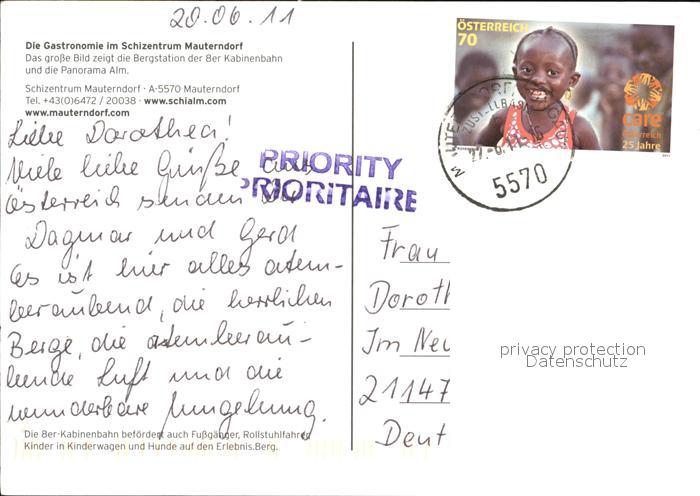 20.06.11
Die Gastronomie im Schizentrum Mauterndorf
Das große Bild zeigt die Bergstation der 8er Kabinenbahn
und die Panorama Alm.
Schizentrum Mauterndorf · A-5570 Mauterndorf
Tel. +43(0)6472 / 20038 · www.schialm.com
www.mauterndorf.com
Liebe Dorothea!
Viele liebe Grüße aus
Österreich senden Dir
Dagmar und Gerd
Es ist hier alles atem-
beraubend, die herrlichen
Berge, die atemberau-
bende Luft und die
wunderbare Umgebung.
Die 8er-Kabinenbahn befördert auch Fußgänger, Rollstuhlfahrer,
Kinder in Kinderwagen und Hunde auf den Erlebnis.Berg.
PRIORITY
PRIORITAIRE
ÖSTERREICH
70
care
österreich
25 Jahre
2011
5570
Frau
Doroth
Im Neu
21147
Deut
privacy protection
Datenschutz